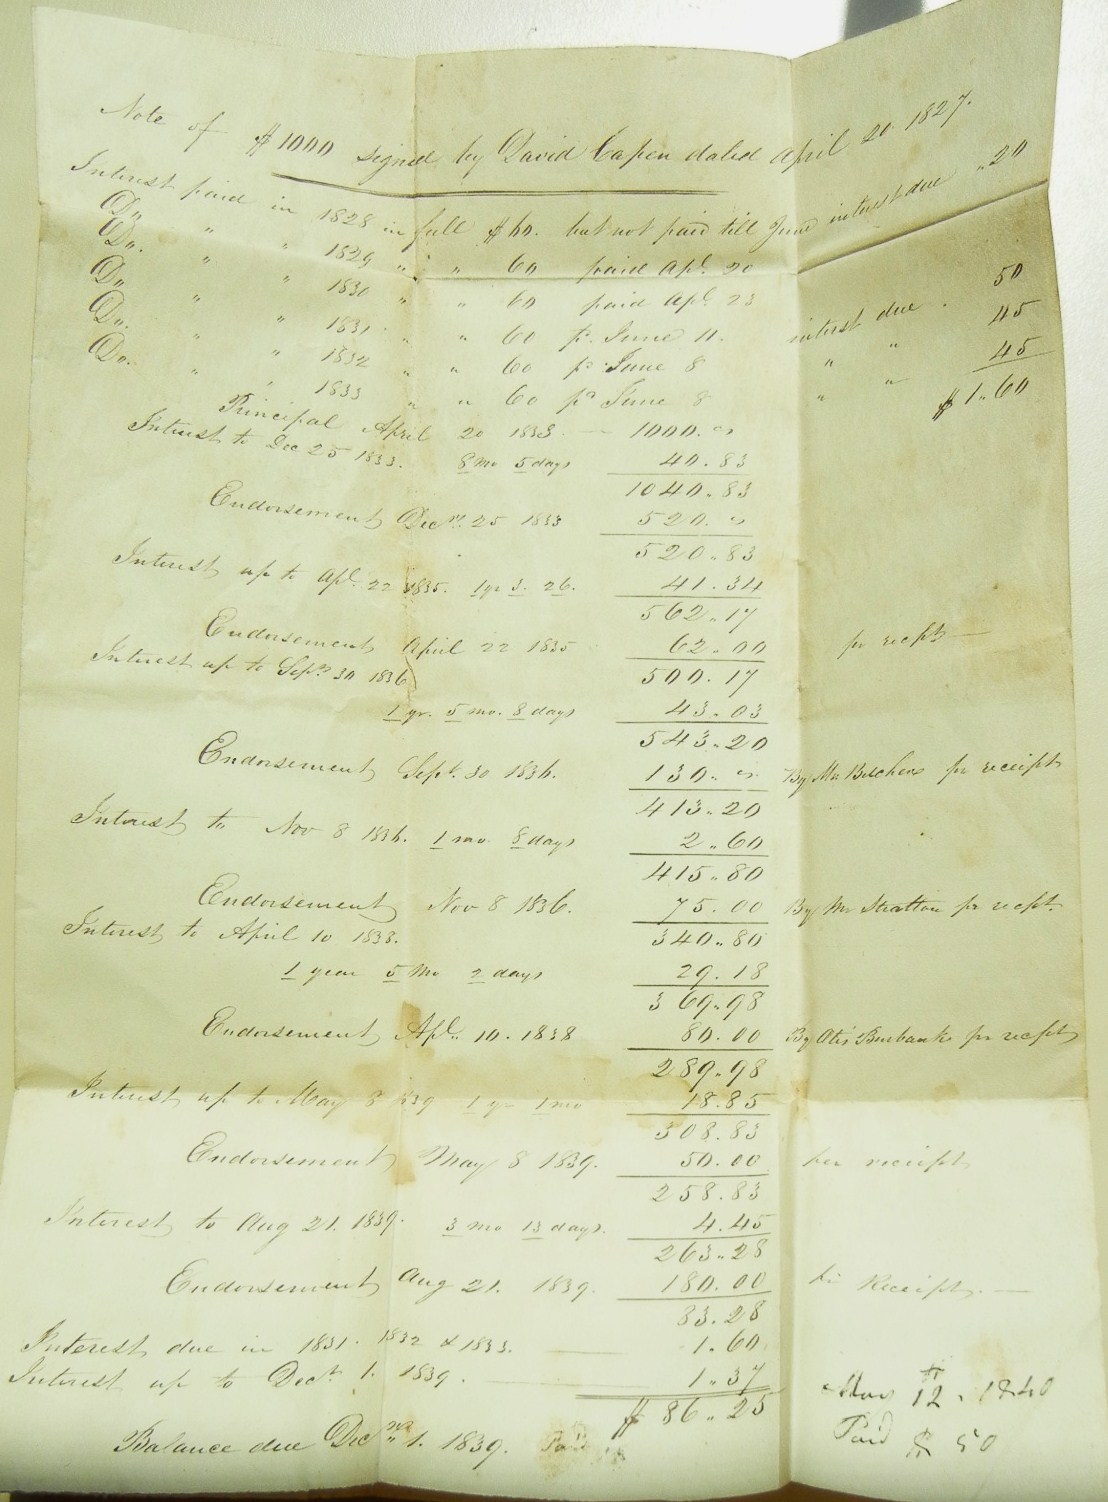 Note of $1000 signed by David Capen dated April 20 1827.
Interest paid in 1828 in full $60. but not paid till June interest due "20
Do " " 1829 " " 60 paid Apl. 20
Do. " " 1830 " " 60 paid Apl. 23
Do " " 1831 " " 60 pd. June 11. interest due . 50
Do. " " 1832 " " 60 pd June 8 " " 45
Do. " " 1833 " " 60 pd June 8 " " 45
$1.60
Principal April 20 1833 — 1000.00
Interest to Dec 25 1833. 8 mo 5 days 40.83
1040.83
Endorsement Decr. 25 1833 520.00
520.83
Interest up to Apl. 22 1835. 1 yr 3. 26. 41.34
562.17
Endorsement April 22 1835 62.00 pr recpt —
500.17
Interest up to Sept. 30 1836
1 yr. 5 mo. 8 days 43.03
543.20
Endorsement Sept. 30 1836. 130.00 By Mr pr receipt
413.20
Interest to Nov 8 1836. 1 mo 8 days 2.60
415.80
Endorsement Nov 8 1836. 75.00 By Mr Stratton pr recpt.
340.80
Interest to April 10 1838.
1 year 5 mo 2 days 29.18
369.98
Endorsement Apl. 10. 1838 80.00 By Otis Burbank pr recpt
289.98
Interest up to May 8 1839 1 yr 1 mo 18.85
308.83
Endorsement May 8 1839. 50.00 per receipt
258.83
Interest to Aug 21. 1839. 3 mo 13 days. 4.45
263.28
Endorsement Aug 21. 1839. 180.00 pr Receipt. —
83.28
Interest due in 1831. 1832 & 1833. — 1.60
Interest up to Dect. 1. 1839. 1.37
$86.25
Balance due Decr 1. 1839. Paid
12. 1840
Paid $50